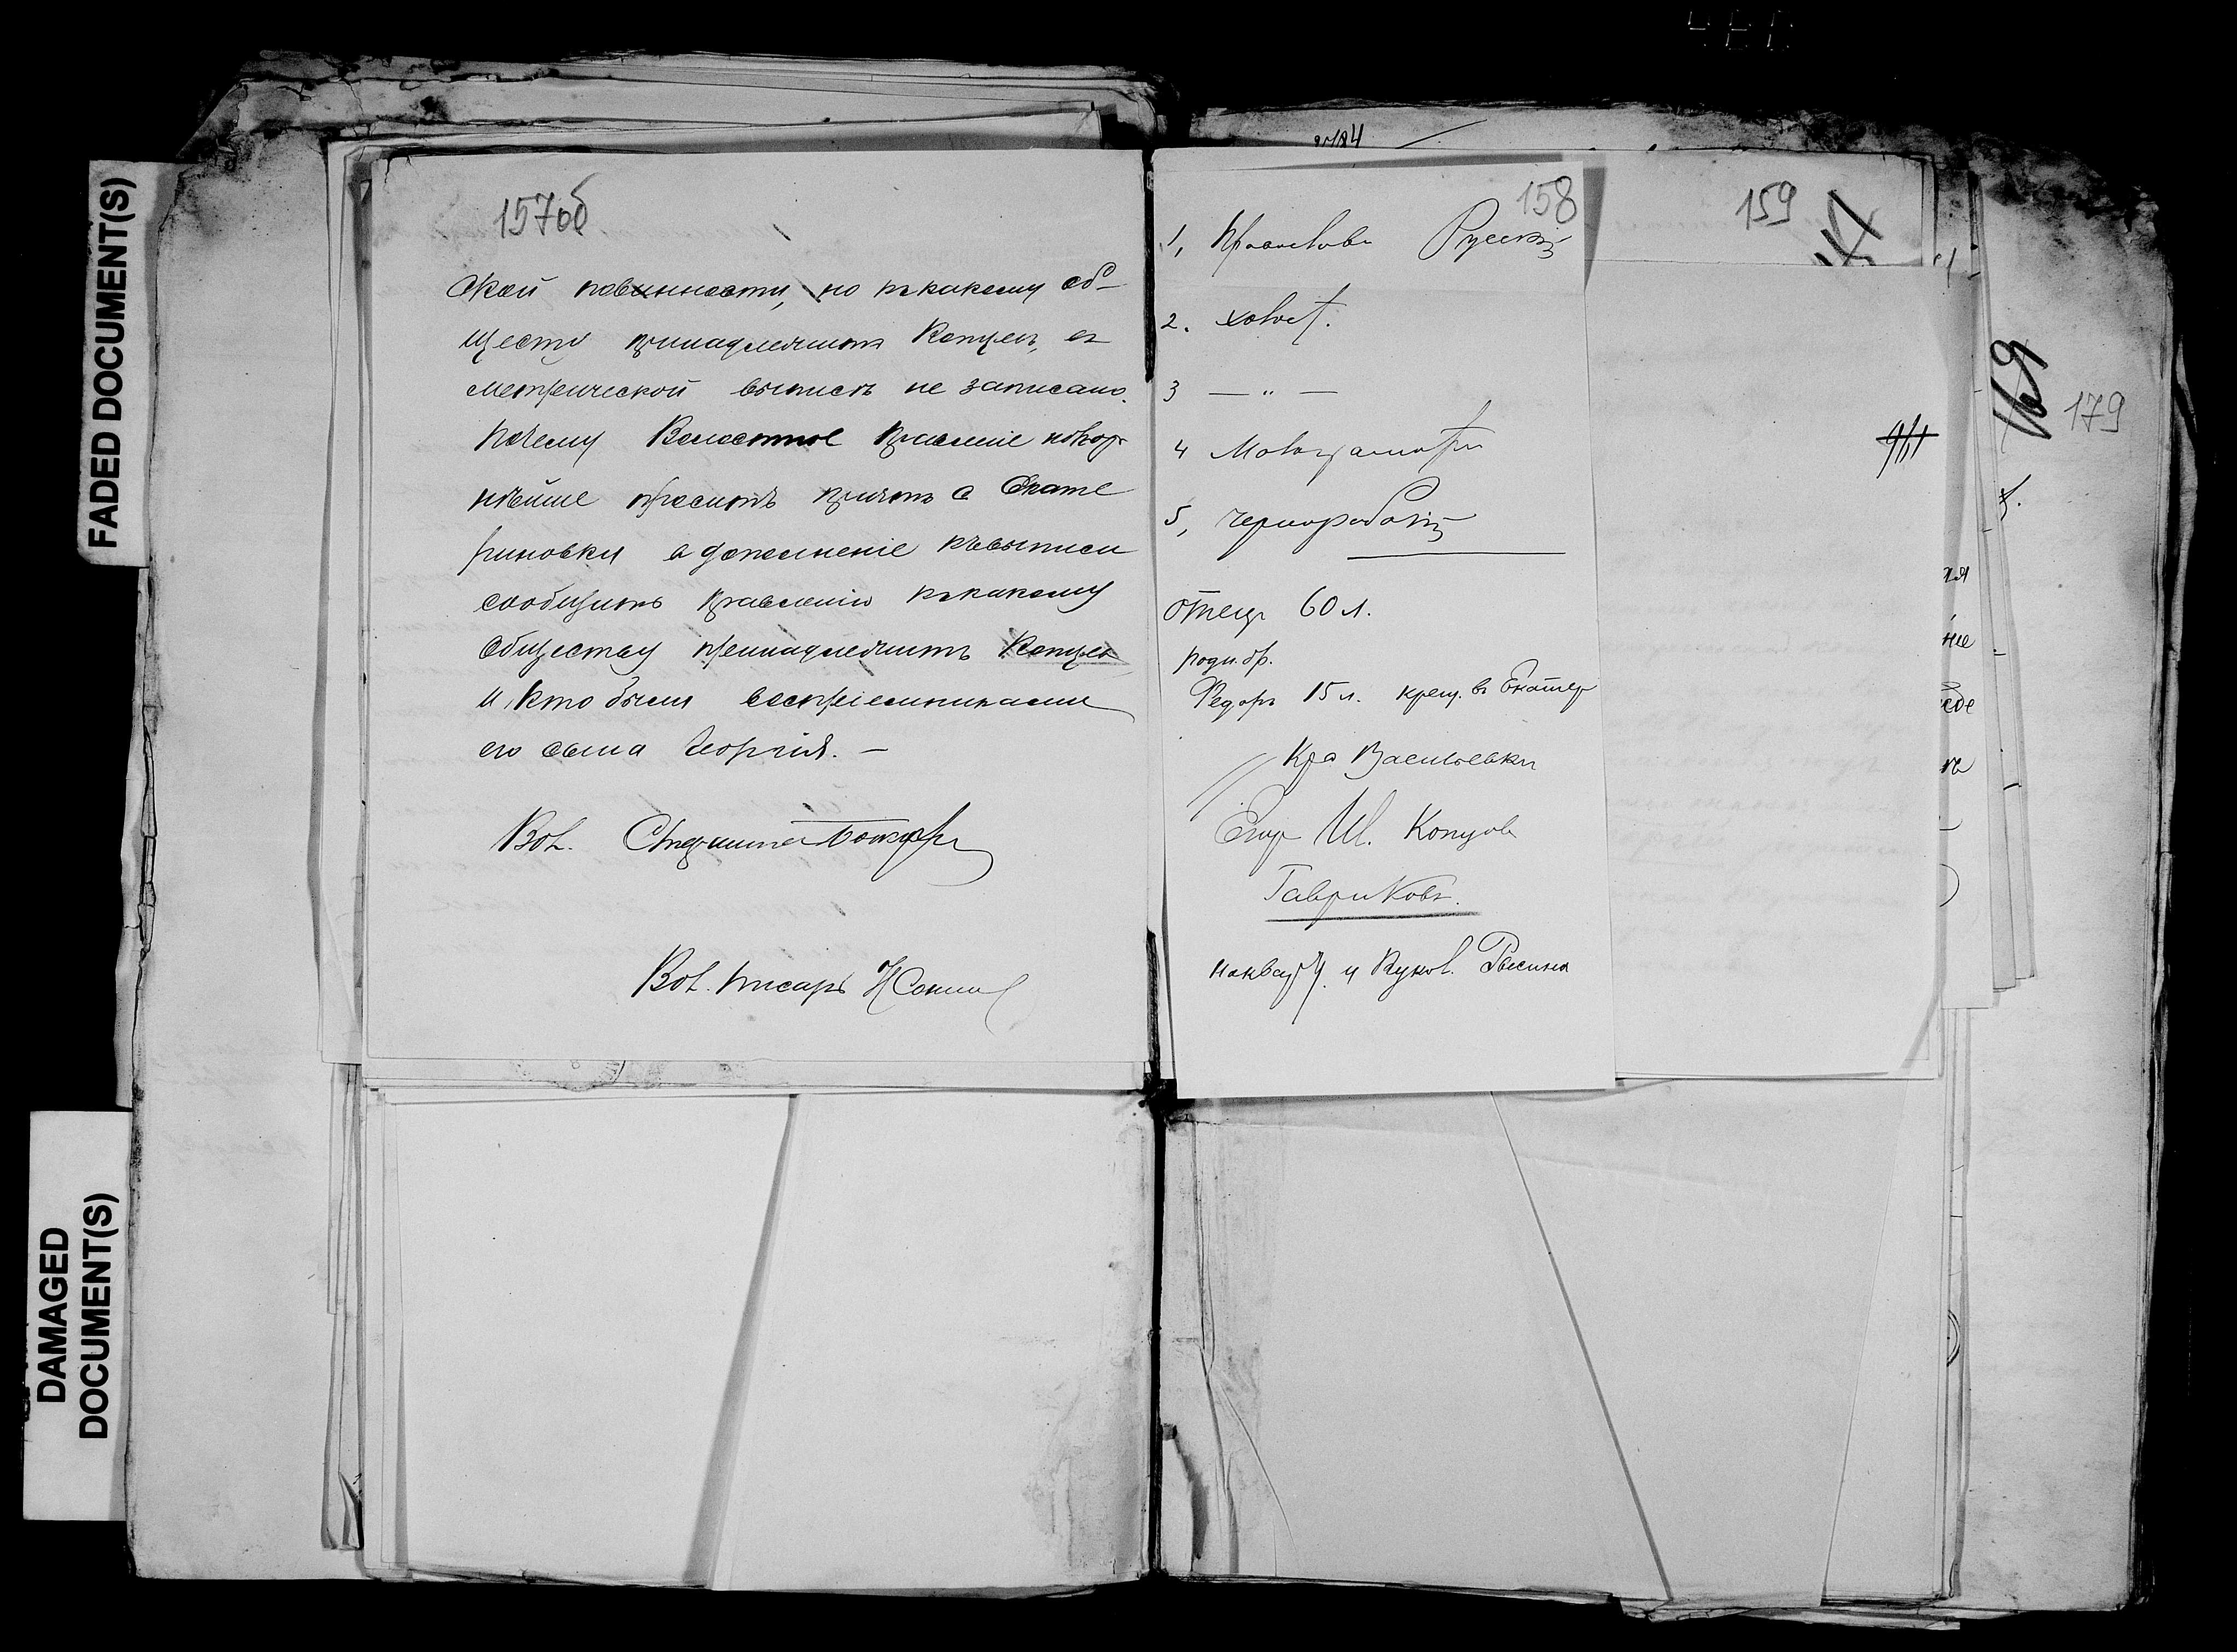 FADED DOCUMENT(S)
DAMAGED
DOCUMENT(S)
157об
ской повинности, но къкакому об-
щесту принадлежитъ Копцевъ, въ
метрической выписѣ не записано.
Почему Волостное Правленіе покор
нѣйше проситъ причтъ с Екате
риновки в дополненіе къвыписи
сообщить правленію къкакому
обществу пренадлежитъ Копцев
и кто были воспріемниками
его сына Георгія. —
Вол. Старшина
Вол. Писарь
158
1, Православ Русскій
2. холост.
3 — „ —
4 Малограмотн
5, Чернорабочій
отецъ 60 л.
родн. бр.
Федоръ 15 л. крещ. въ Екатер
Кра Васильевки
Егор Копцов
Гавриковъ.
159
169
179